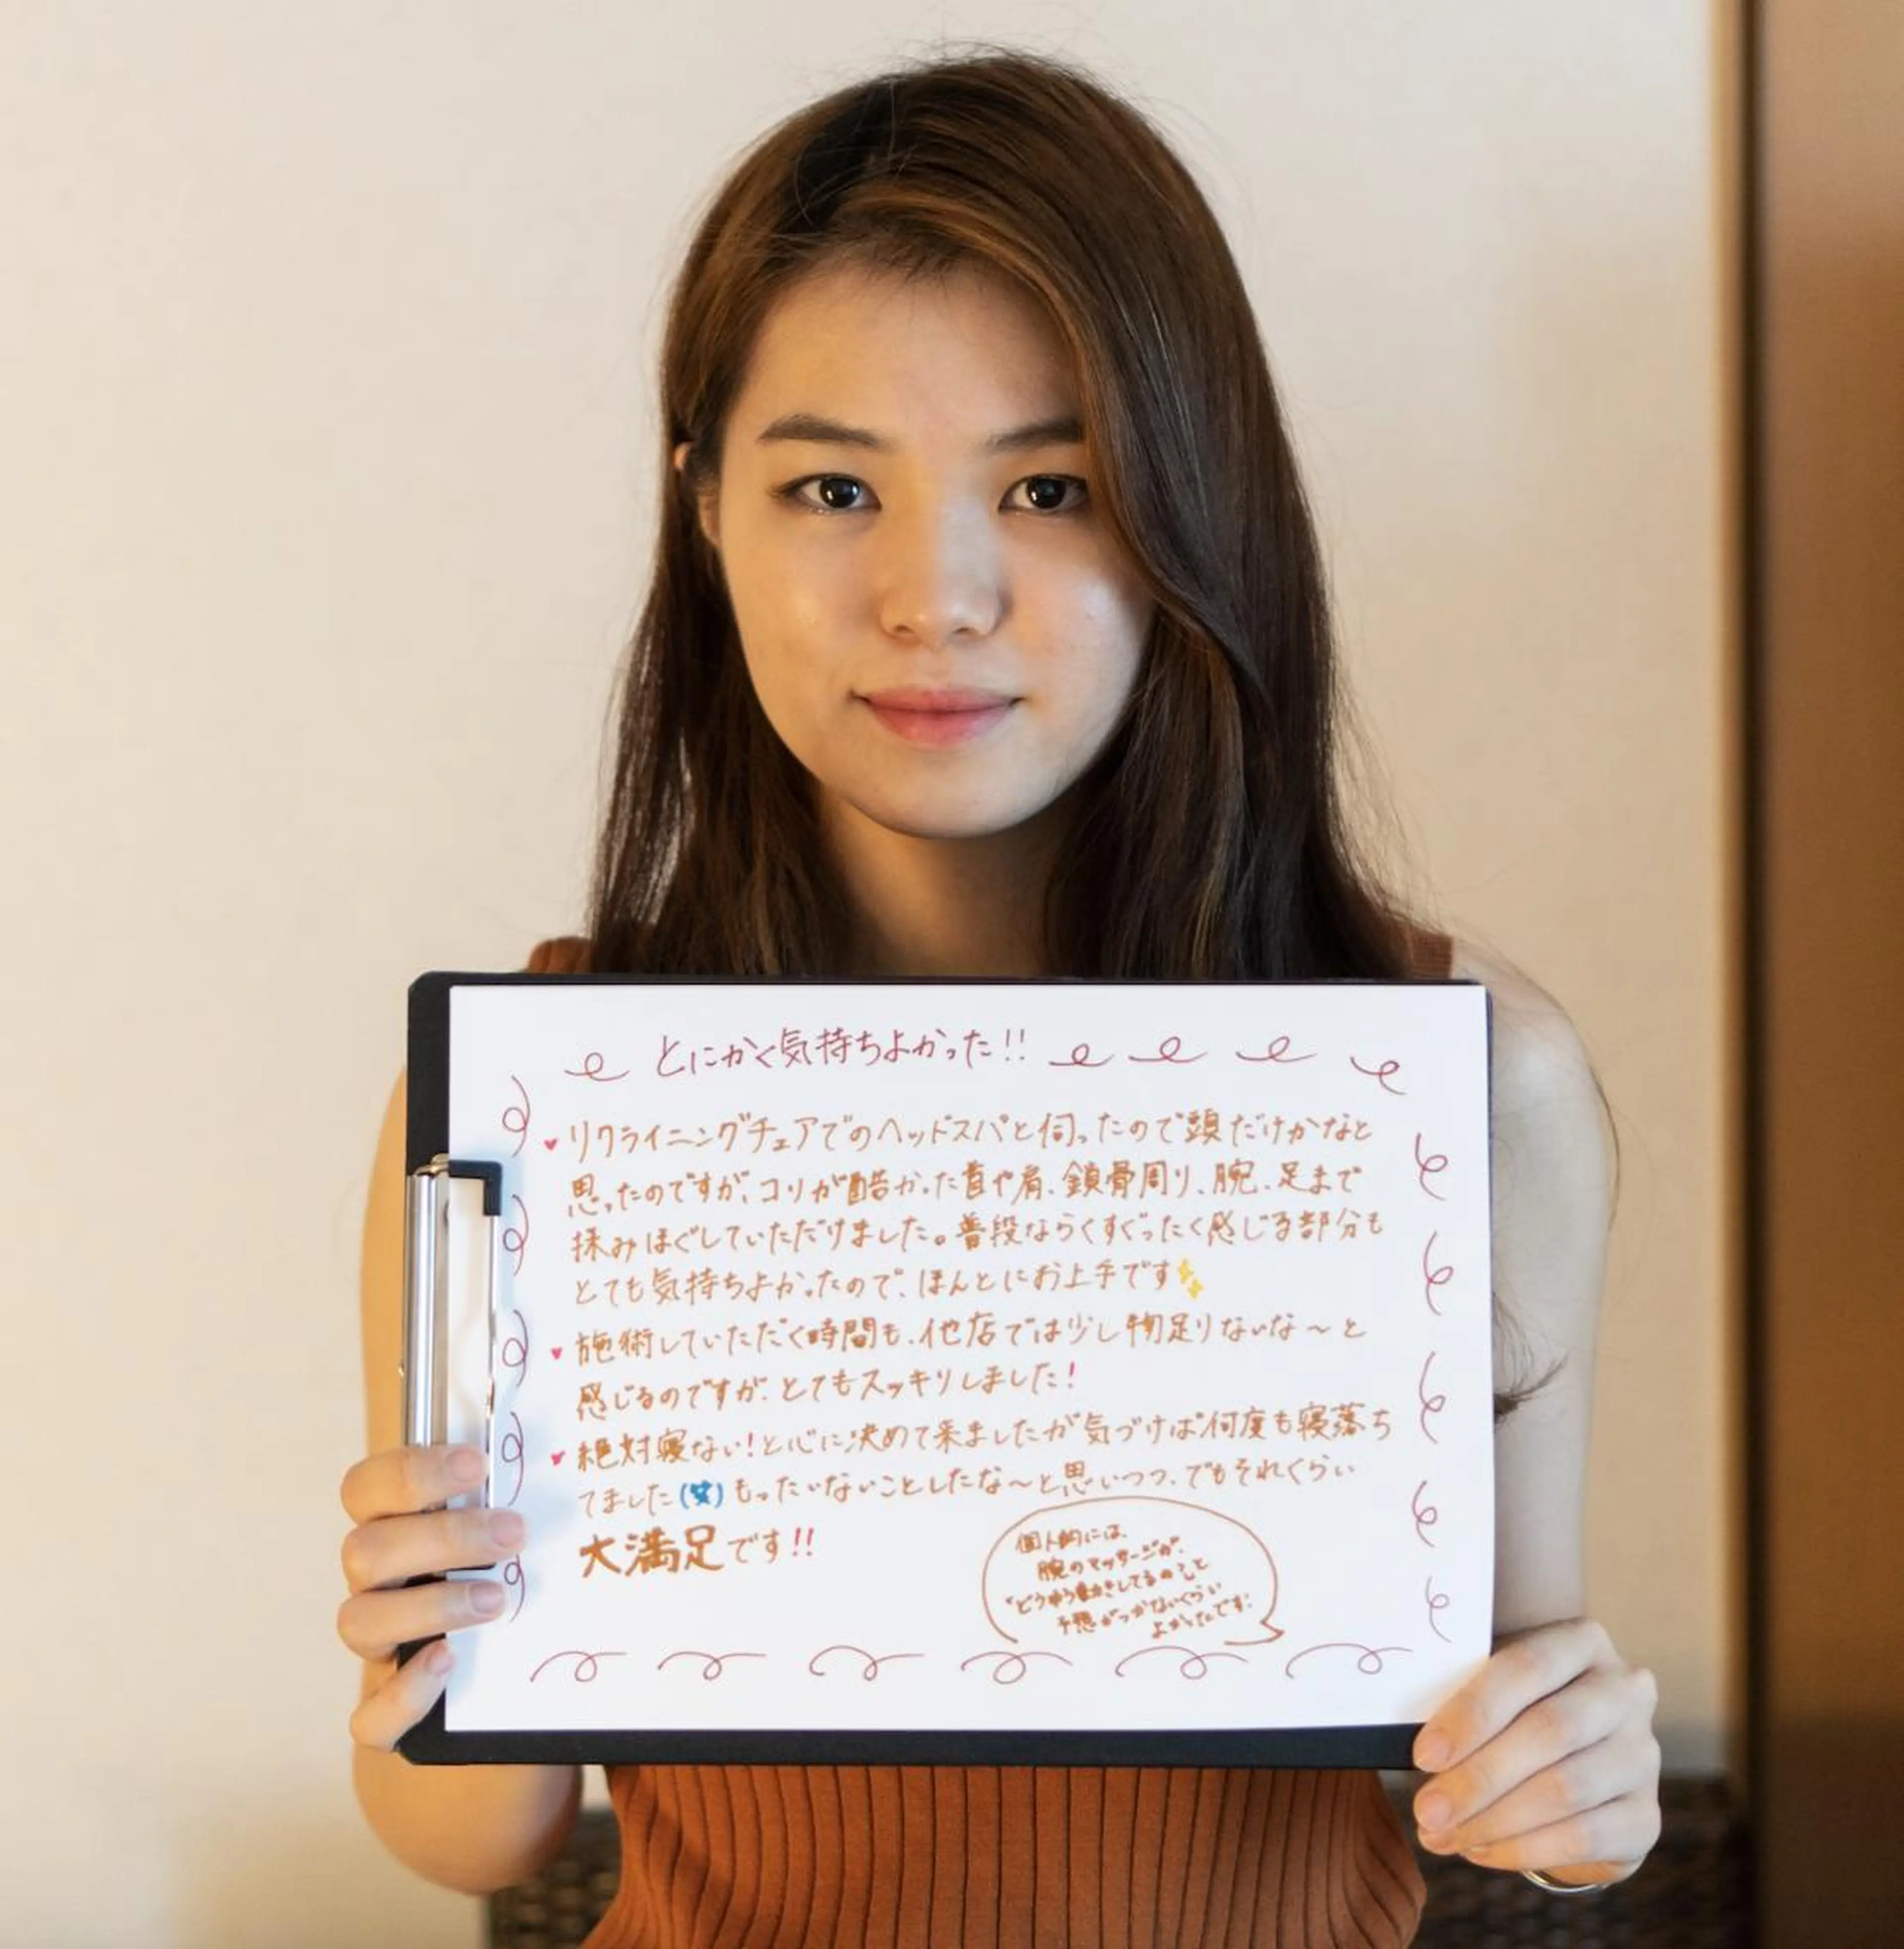 とにかく気持ちよかった!!
リクライニングチェアでのヘッドスパと伺ったので頭だけかなと
思ったのですが、コリが酷かった首や肩、鎖骨周り、腕、足まで
揉みほぐしていただけました。普段ならくすぐったく感じる部分も
とても気持ちよかったので、ほんとにお上手です
施術していただく時間も、他店では少し物足りないな〜と
感じるのですが、とてもスッキリしました!
絶対寝ない!と心に決めて来ましたが気づけば何度も寝落ち
てました(笑)もったいないことしたな〜と思いつつ、でもそれくらい
大満足です!!
個人的には
腕のマッサージが、
"どうゆう動きしてるの?"と
予想がつかないくらい
よかったです!